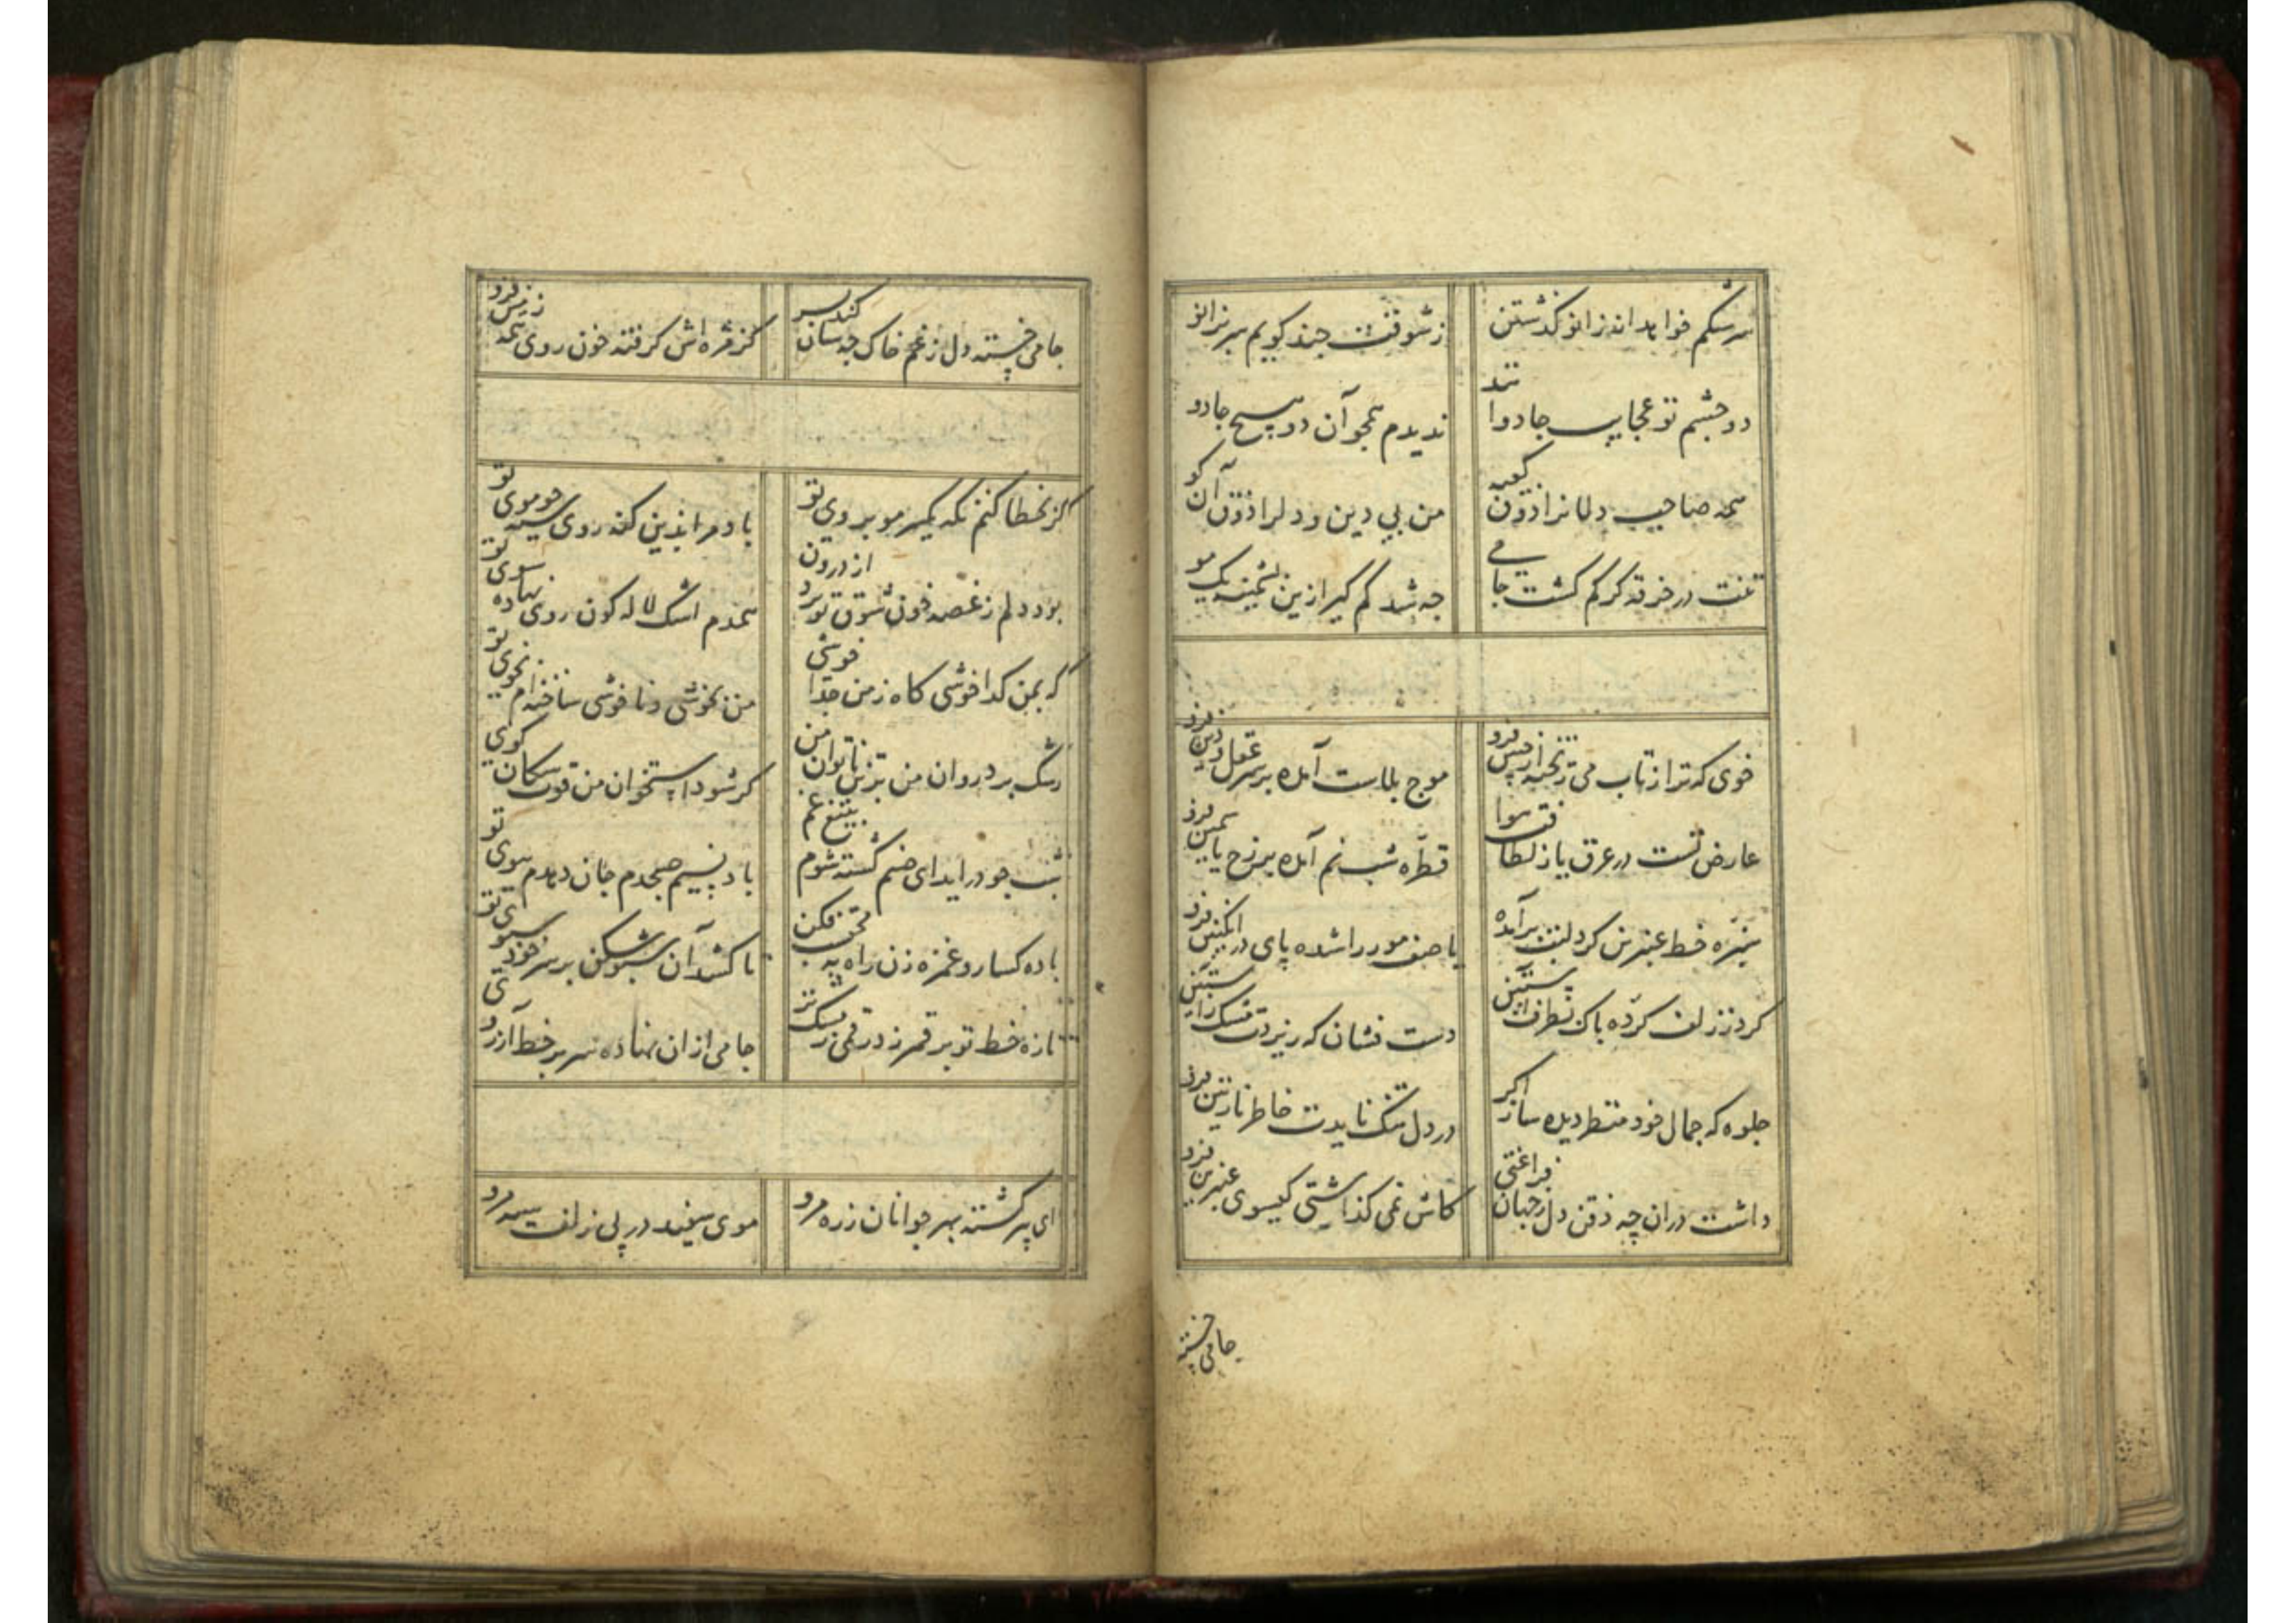 سرشکم خواهد از زانو گذشتن
ز شوقت چند گویم سر بزانو
دو چشم تو عجایب جادوانند
ندیدم همچو آن دو هیچ جادو
همه صاحب دلانرا ذوق کعبه
من بی دین و دلرا ذوق آن کو
تنت در خرقه گر گم گشت جامی
چه شد گم گیر ازین پشمینه یک مو
خوی که ترا ز تاب می ریخته از جبین فرو
موج بلاست آمده بر سر عقل و دین فرو
عارض تست در عرق یا ز لطافت هوا
قطره شبنم آمده بر رخ یاسمین فرو
سبزه خط عنبرین گرد لبت برآمده
یا صف مور را شده پای در انگبین فرو
گرد ز زلف کرده پاک بطرف آستین
دست فشان که ریزدت مشک ز آستین فرو
جلوه که جمال خود منظر دیده ساز اگر
در دل تنگ نایدت خاطر نازنین فرو
داشت در آن چه ذقن دل ز جهان فراغتی
کاش نمی گذاشتی گیسوی عنبرین فرو
جامی خسته
جامی خسته دل ز غم خاک چه سان کند بسر
کز مژه اش گرفته خون روی همه زمین فرو
گر بخطا کنم نگه یکسر مو بروی تو
باد مرا بدین گنه روی سیه چو موی تو
بود دلم ز غصه خون شوق تو برد از درون
همدم اشک لاله گون روی نهاده سوی تو
گه بمن گدا خوشی گاه ز من جدا خوشی
من بخوشی و ناخوشی ساخته ام بخوی تو
رشک برد روان من بر تن ناتوان من
گر شود استخوان من قوت سگان کوی تو
شب چو در آید ای صنم کشته شوم بتیغ غم
باد نسیم صبحدم جان دهدم ببوی تو
باده گسار و غمزه زن راه به محتسب فکن
تا کشد آن سبو شکن بر سر خود سبوی تو
تازه خط تو بر قمر زد رقمی ز مشک تر
جامی از آن نهاده سر بر خط آرزوی تو
ای پیر گشته بهر جوانان ز ره مرو
موی سفید در پی زلف سیه مرو